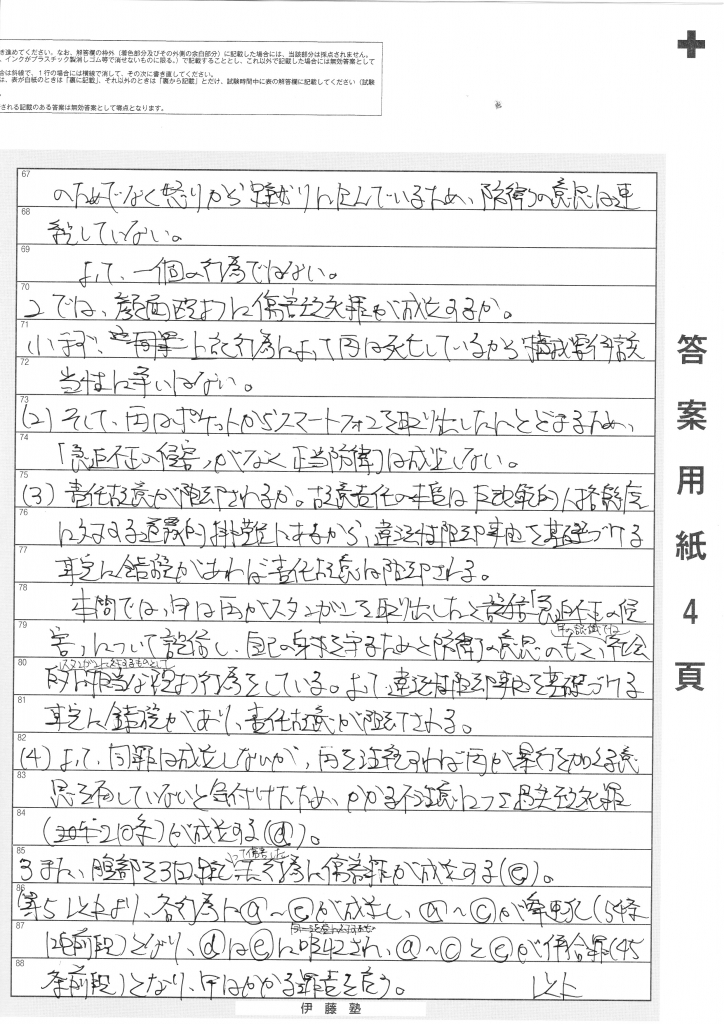 き進めてください。なお、解答欄の枠外（着色部分及びその外側の余白部分）に記載した場合には、当該部分は採点されません。
、インクがプラスチック製消しゴム等で消せないものに限る。）で記載することとし、これ以外で記載した場合には無効答案として
合は斜線で、1行の場合には横線で消して、その次に書き直してください。
は、表が白紙のときは「裏に記載」、それ以外のときは「裏から記載」とだけ、試験時間中に表の解答欄に記載してください（試験
される記載のある答案は無効答案として零点となります。
答案用紙4頁
67 のためでなく怒りから 及んでいるため、防衛の意思は連
68 続していない。
69 よって、一個の行為ではない。
70 2 では、顔面殴打に傷害致死罪が成立するか。
71 (1) まず、上記行為によって丙は死亡しているから構成要件該
72 当性に争いはない。
73 (2) そして、丙はポケットからスマートフォンを取り出したにとどまるため、
74 「急迫不正の侵害」がなく正当防衛は成立しない。
75 (3) 責任故意が阻却されるか。故意責任の本質は反規範的人格態度
76 に対する道義的非難にあるから、違法性阻却事由を基礎づける
77 事実に錯誤があれば責任故意は阻却される。
78 本問では、甲は丙がスタンガンを取り出したと誤信「急迫不正の侵
79 害」について誤信し、自己の身体を守るためと防衛の意思のもと、甲の認識では社会
80 的に スタンガンに対するものとして相当な殴打行為をしている。よって、違法性阻却事由を基礎づける
81 事実に錯誤があり、責任故意が阻却される。
82 (4) よって、同罪は成立しないが、丙を注視すれば丙が暴行を加える意
83 思を有していないと気付けたため、かかる不注意につき過失致死罪
84 (210条)が成立する(ⓓ)。
85 3 また、腹部を3回 って傷害した行為に傷害罪が成立する(ⓔ)。
86 第5 以上より、各行為にⓐ～ⓔが成立し、ⓐ～ⓒが 54条
87 1項前段)となり、ⓓはⓔに吸収され、ⓐ～ⓒとⓔが併合罪(45
88 条前段)となり、甲はかかる罪責を負う。 以上
伊藤塾